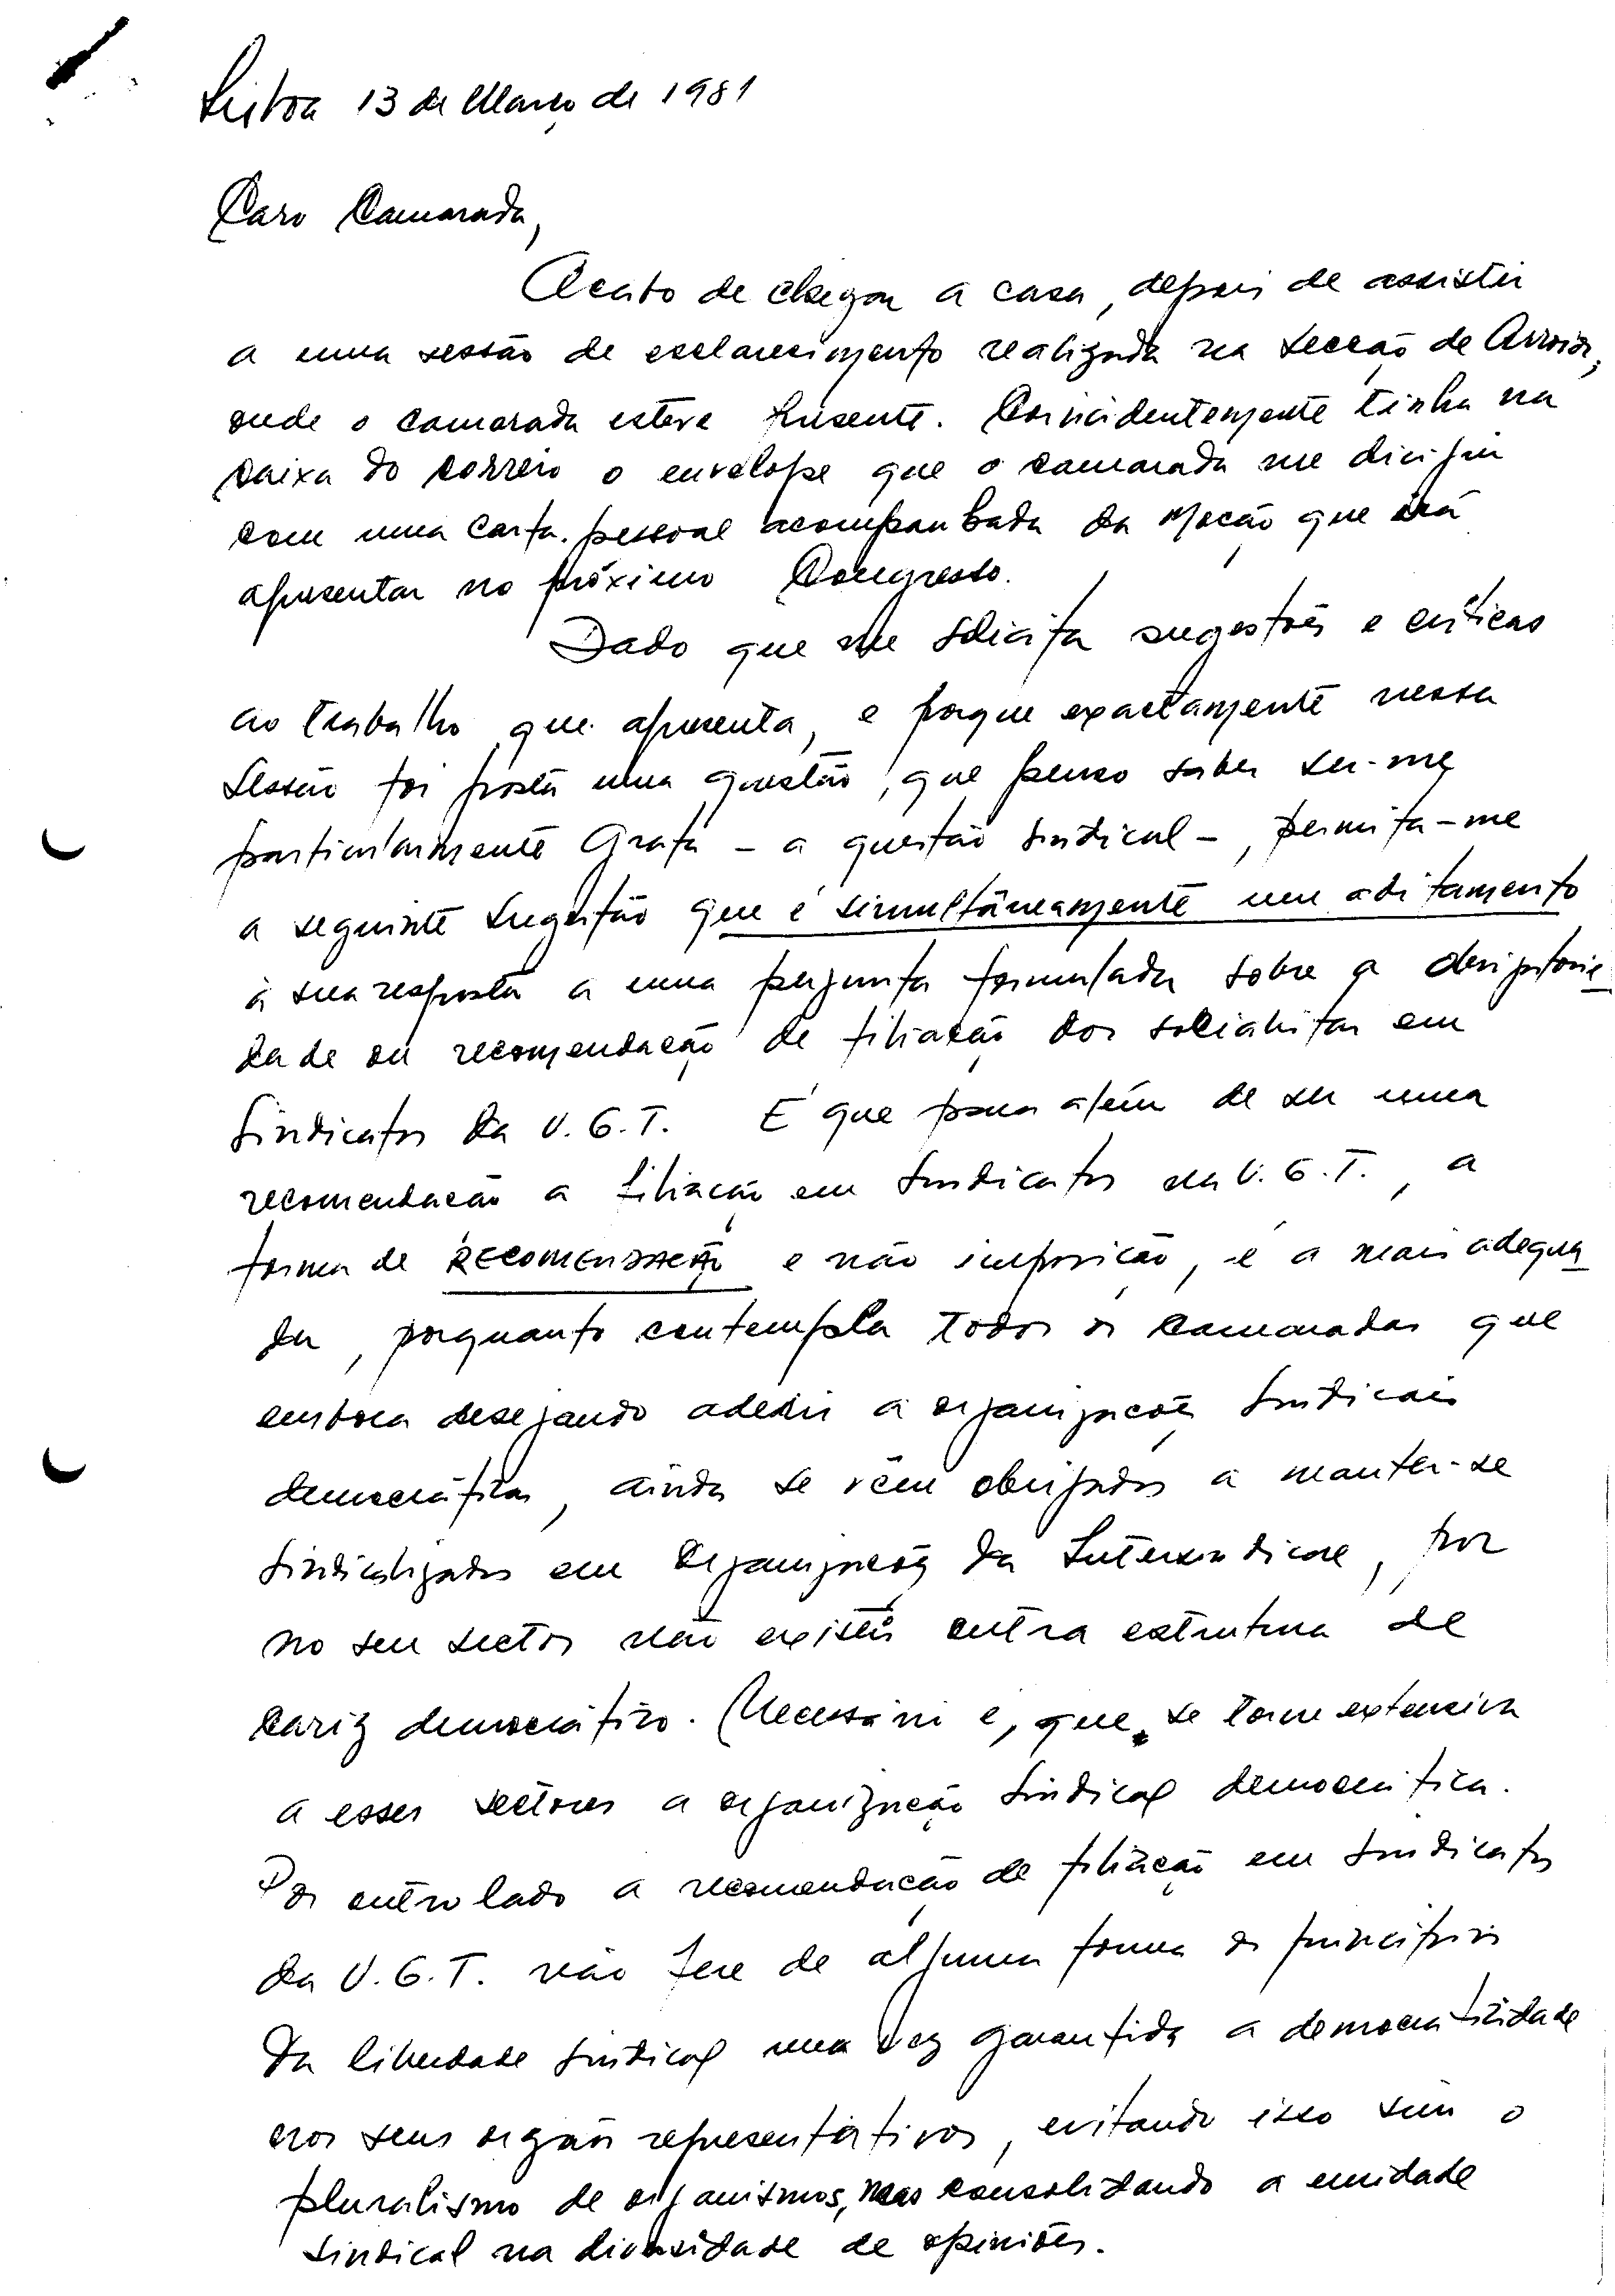 Lisboa 13 de Março de 1981
Caro Camarada,
Acabo de chegar a casa, depois de assistir
a uma sessão de esclarecimento realizada na secção de Arroios,
onde o camarada esteve presente. Coincidentemente tinha na
caixa do correio o envelope que o camarada me dirigiu
com uma carta pessoal acompanhada da Moção que irá
apresentar no próximo Congresso.
Dado que me solicita sugestões e críticas
ao trabalho que apresenta, e porque exactamente nessa
sessão foi posta uma questão, que penso saber ser-me
particularmente grata - a questão sindical -, permita-me
a seguinte sugestão que é simultâneamente um aditamento
à sua resposta a uma pergunta formulada sobre a obrigatorie
dade ou recomendação de filiação dos socialistas em
Sindicatos da U.G.T. É que para além de ser uma
recomendação a filiação em Sindicatos da U.G.T., a
forma de RECOMENDAÇÃO e não imposição, é a mais adequa
da, porquanto contempla todos os camaradas que
embora desejando aderir a organizações sindicais
democráticas, ainda se vêm obrigados a manter-se
sindicalizados em organizações da Intersindical, por
no seu sector não existir outra estrutura de
cariz democrático. (Necessário é, que se torne extensiva
a esses sectores a organização sindical democrática.
Por outro lado a recomendação de filiação em sindicatos
da U.G.T. não fere de alguma forma os princípios
da liberdade sindical uma vez garantida a democraticidade
nos seus orgãos representativos, evitando isso sim o
pluralismo de organismos, mas consolidando a unidade
sindical na diversidade de opiniões.